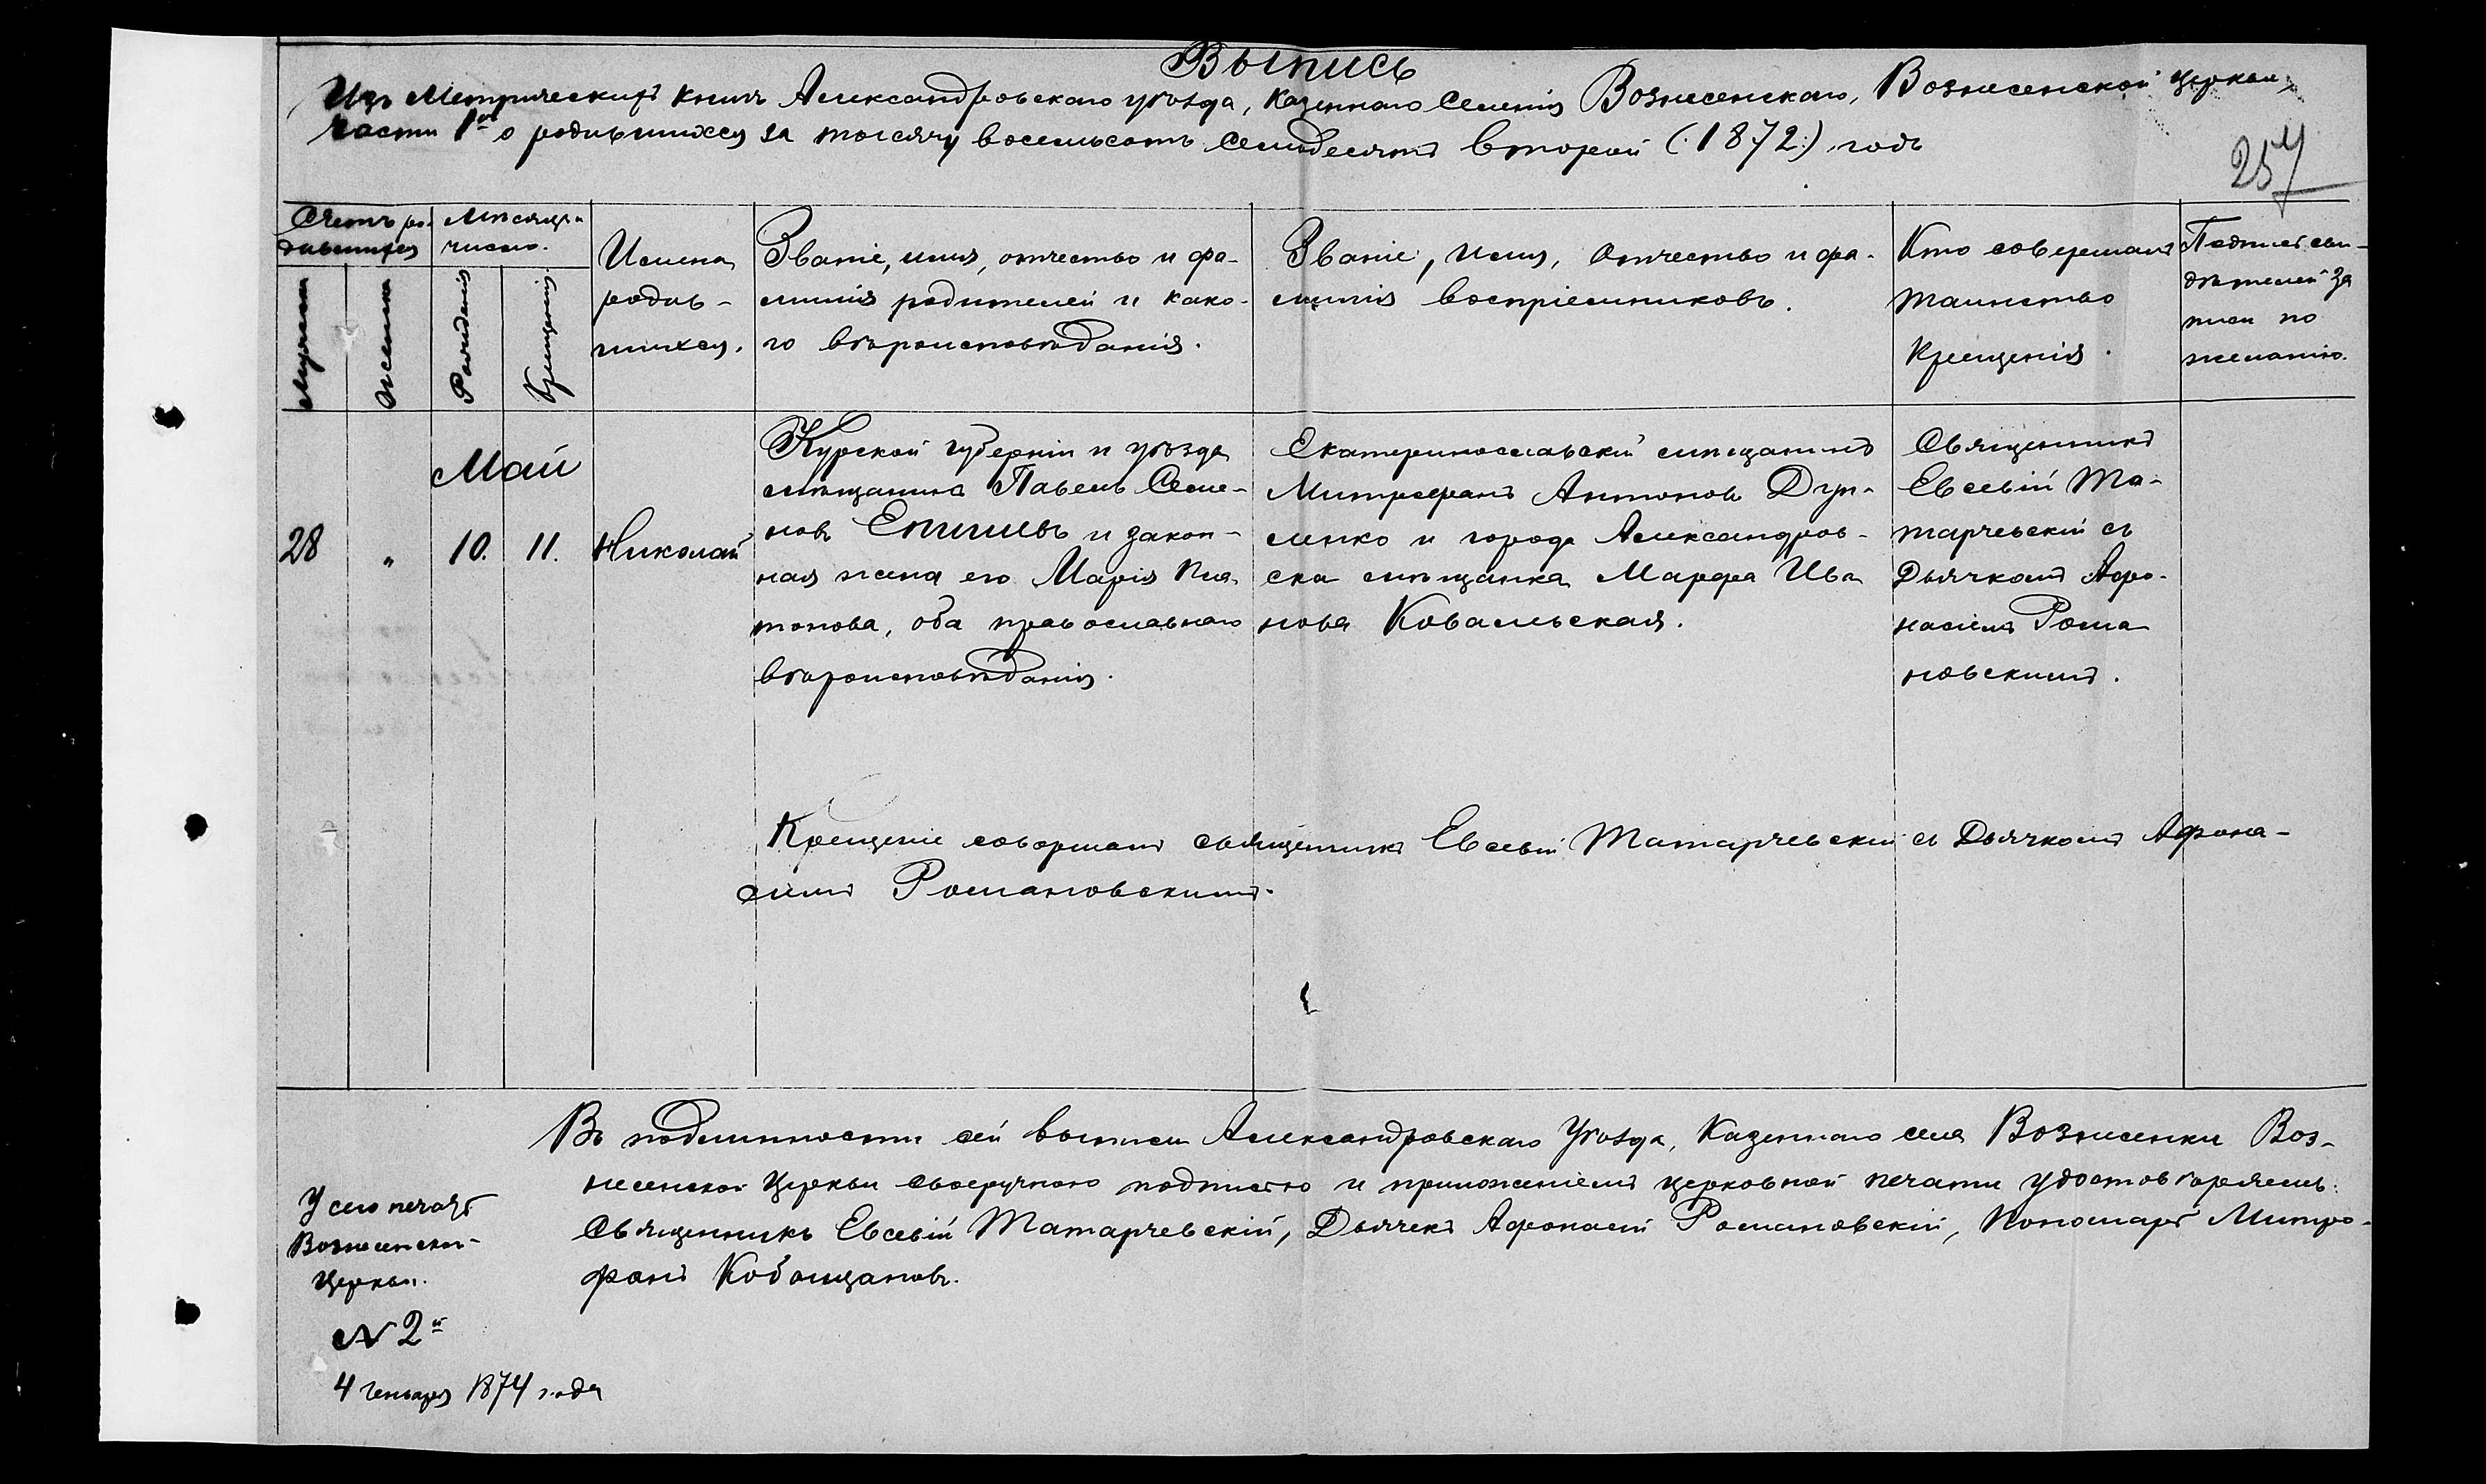 Выпись
Изъ Метрическихъ книгъ Александровскаго уѣзда, Казеннаго Селенія Вознесенскаго, Вознесенской церкви,
части 1й о родившихся за тысячу восемьсотъ семьдесятъ второй (1872) годъ
257
Счетъ ро-
дившихся
Мѣсяцъ и
число.
Мужеска
Женска
Рожденія
Крещенія
Имена
родив-
шихся.
Званіе, имя, отчество и фа-
милія родителей и како-
го вѣроисповѣданія.
Званіе, имя, отчество и фа-
милія воспріемниковъ.
Кто совершалъ
таинство
Крещенія.
Подпись сви-
дѣтелей за
писи по
желанію.
Май
28 " 10. 11. Николай
Курской губерніи и уѣзда
мѣщанинъ Павелъ Семе-
новъ Епишевъ и закон-
ная жена его Марія Пла
тонова, оба православнаго
вѣроисповѣданія.
Екатеринославскій мѣщанинъ
Митрофанъ Антоновъ
и города Александров-
ска мѣщанка Марфа Ива
нова Ковальская.
Священникъ
Евсевій Та-
тарчевскій съ
Дьячкомъ Афо-
насіемъ Рома
новскимъ.
Крещеніе совершалъ священникъ Евсевій Татарчевскій съ Дьячкомъ Афона-
сіимъ Романовскимъ.
Въ подлинности сей выписи Александровскаго Уѣзда, Казеннаго села Вознесенки Воз-
несенской Церкви своеручною подписью и приложеніемъ церковной печати удостовѣряемъ:
Священникъ Евсевій Татарчевскій, Дьячекъ Афонасій Романовскій, Пономарь Митро-
фанъ Кобыщановъ.
У сего печать
Вознесенской
Церкви.
N 2й
4 Генваря 1874 года